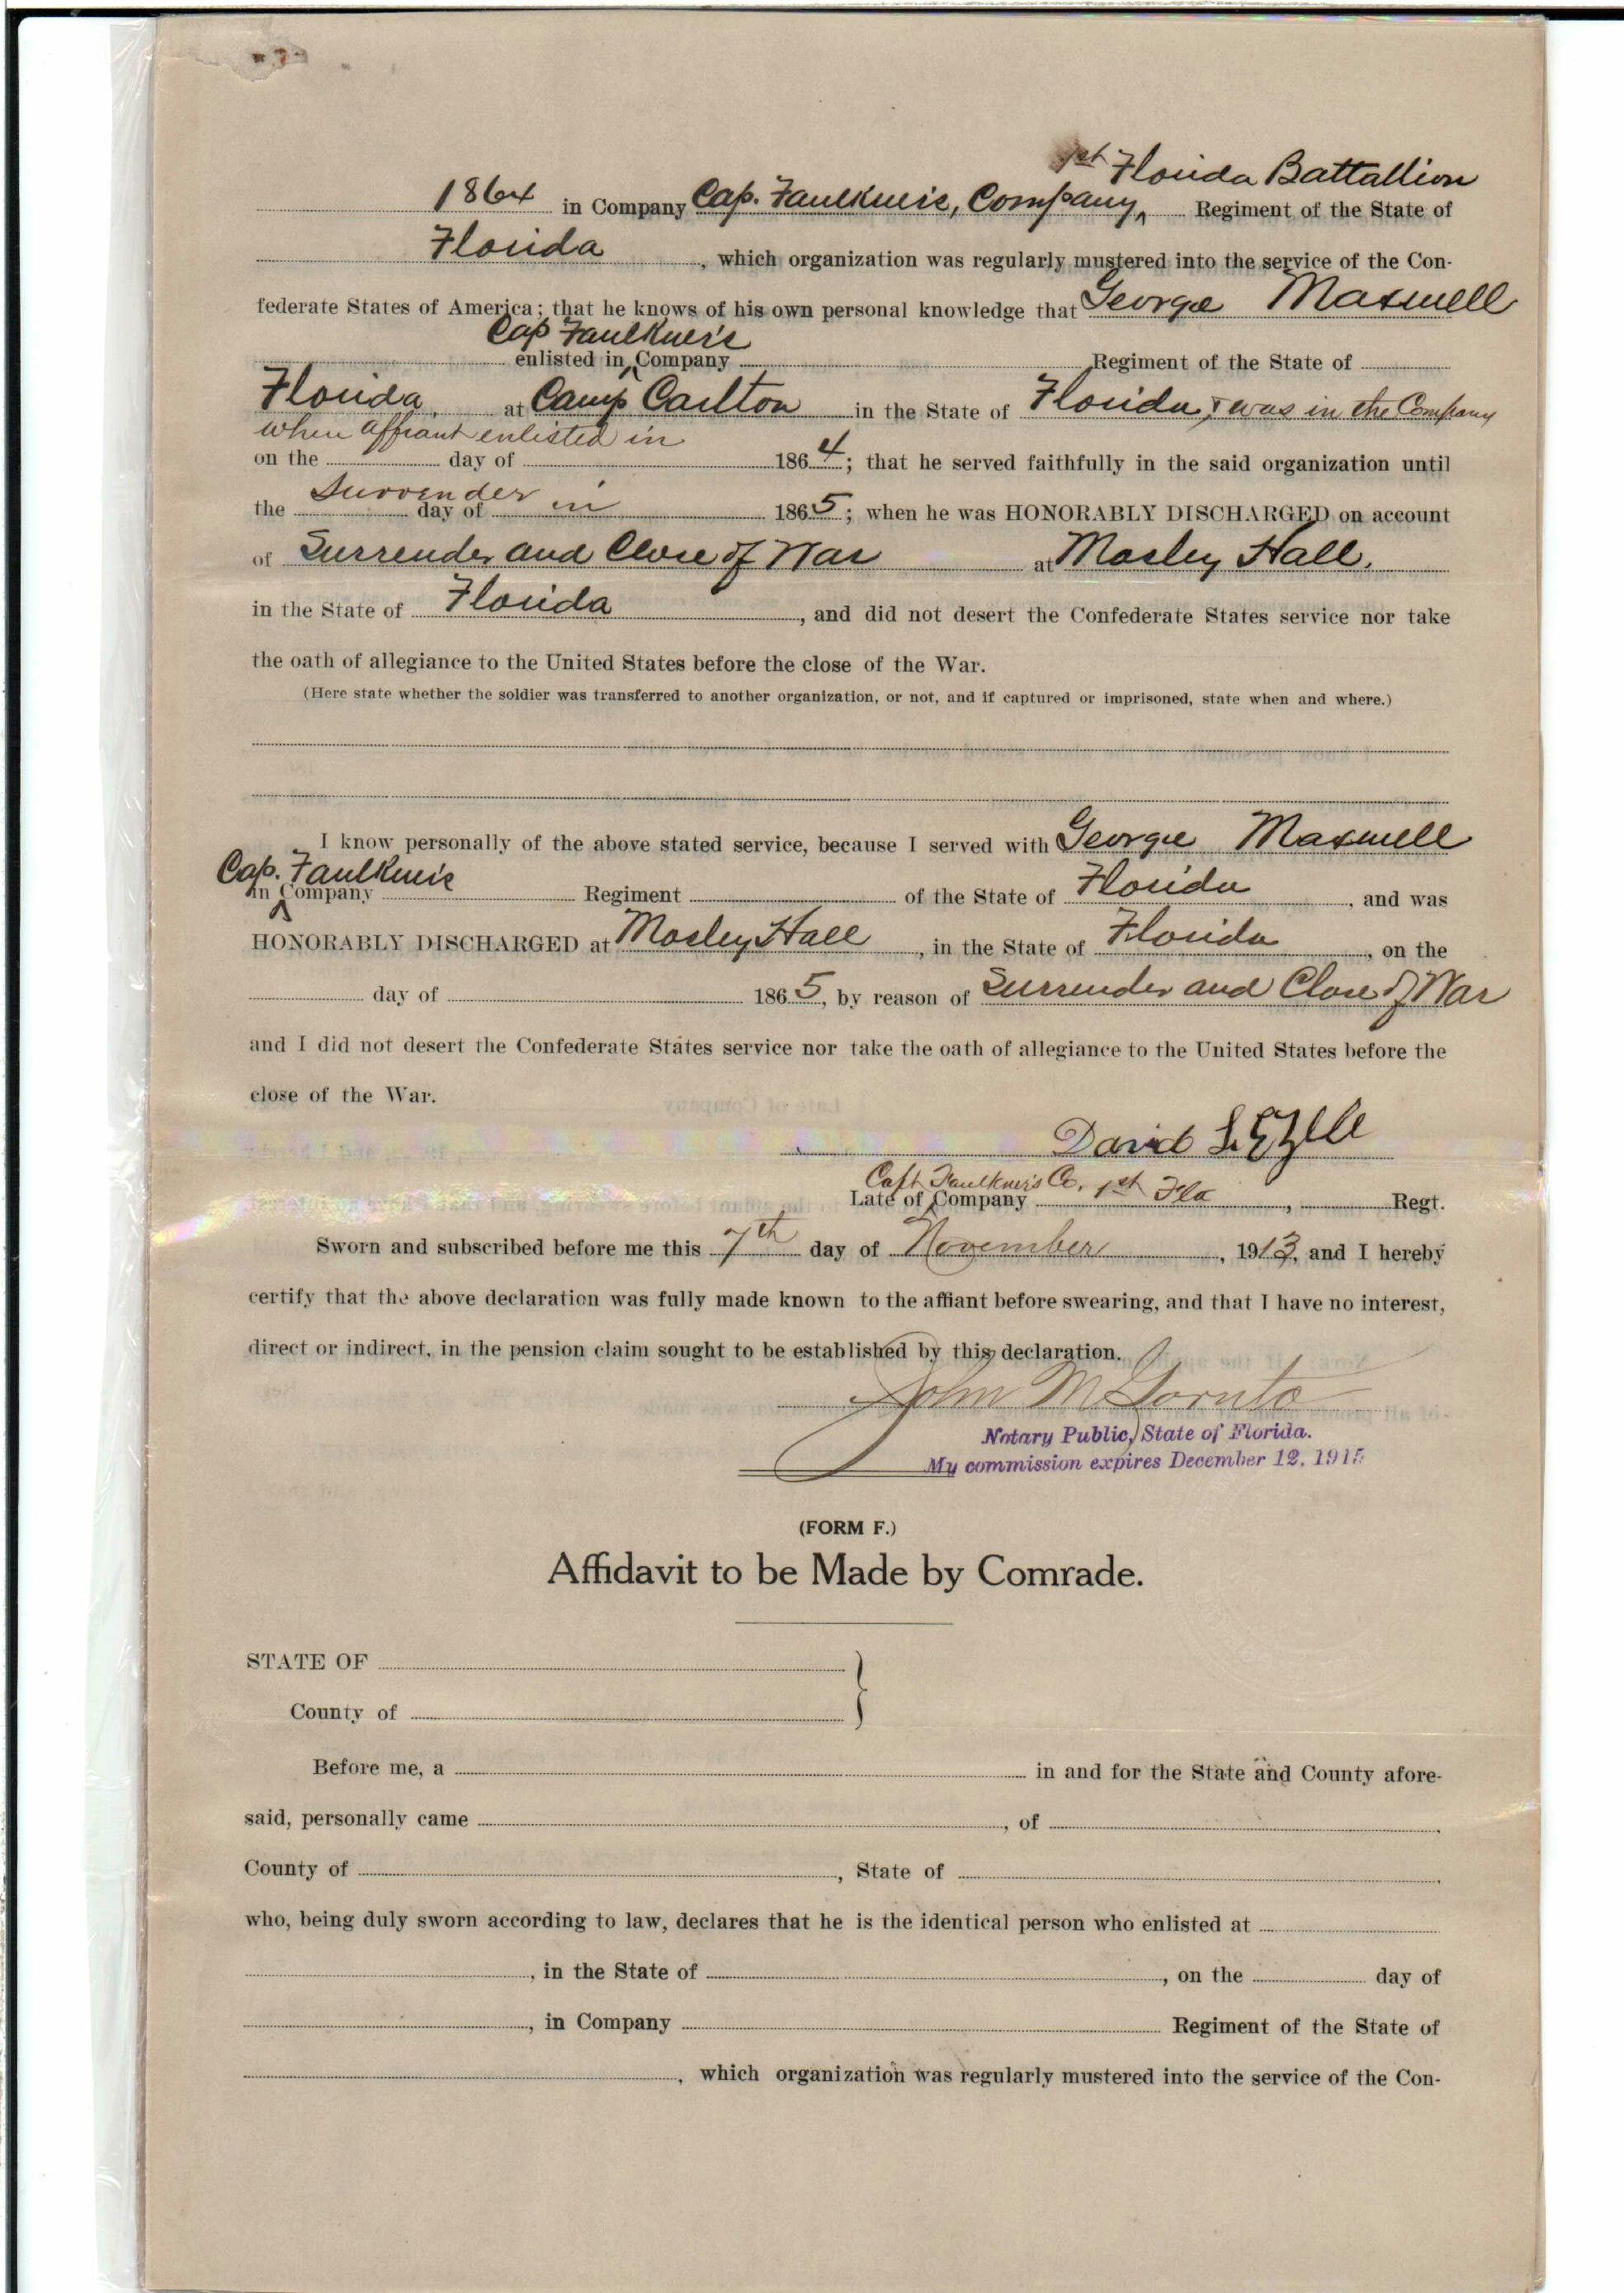 1st Florida Battallion
1864 in Company Cap. Faulkner's, Company, ^ Regiment of the State of
Florida, which organization was regularly mustered into the service of the Con-
federate States of America; that he knows of his own personal knowledge that George Maxwell
Cap Faulkner's
enlisted in Company Regiment of the State of
Florida, at Camp Carlton in the State of Florida, & was in the Company
when affiant enlisted in
on the day of 1864; that he served faithfully in the said organization until
Surrender in
the day of 1865; when he was HONORABLY DISCHARGED on account
of Surrender and Close of War at Mosley Hall,
in the State of Florida, and did not desert the Confederate States service nor take
the oath of allegiance to the United States before the close of the War.
(Here state whether the soldier was transferred to another organization, or not, and if captured or imprisoned, state when and where.)
I know personally of the above stated service, because I served with George Maxwell
Cap. Faulkner's
in ^ Company Regiment of the State of Florida, and was
HONORABLY DISCHARGED at Mosley Hall, in the State of Florida, on the
day of 1865, by reason of Surrender and Close of War
and I did not desert the Confederate States service nor take the oath of allegiance to the United States before the
close of the War.
David L. Ezell
Capt Faulkner's Co. 1st Fla
Late of ^ Company , Regt.
Sworn and subscribed before me this 7th day of November, 1913, and I hereby
certify that the above declaration was fully made known to the affiant before swearing, and that I have no interest,
direct or indirect, in the pension claim sought to be established by this declaration.
John M Gornto
Notary Public, State of Florida.
My commission expires December 12, 1915
(FORM F.)
Affidavit to be Made by Comrade.
STATE OF
County of
Before me, a in and for the State and County afore-
said, personally came , of .
County of , State of .
who, being duly sworn according to law, declares that he is the identical person who enlisted at
, in the State of , on the day of
, in Company Regiment of the State of
, which organization was regularly mustered into the service of the Con-